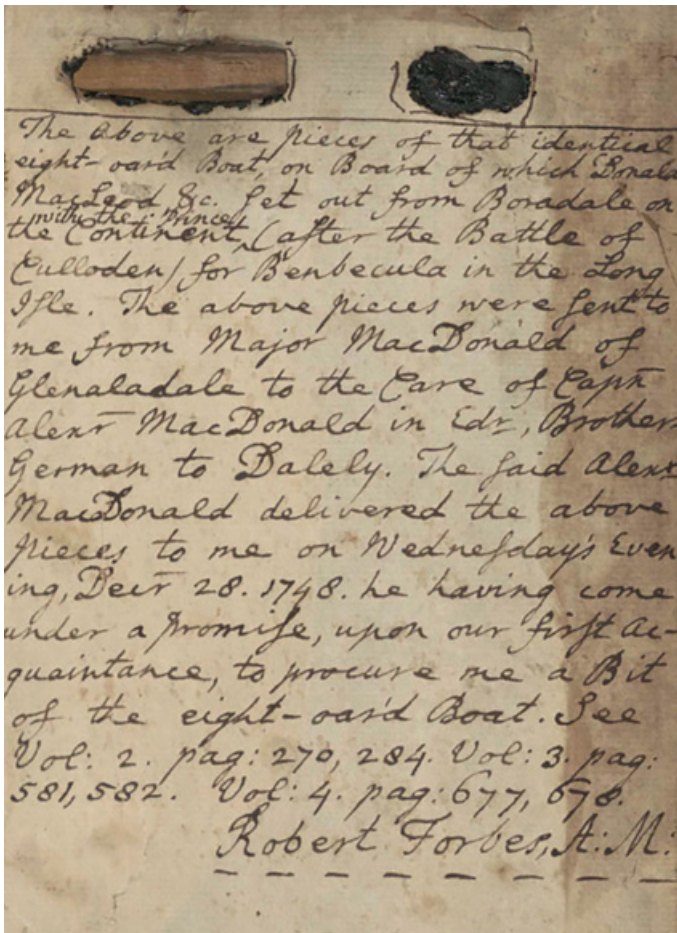 The above are pieces of that identical
eight-oar'd Boat, on Board of which Donald
MacLeod &c. set out from Boradale on
with the Prince
the Continent, ‸ (after the Battle of
Culloden) for Benbecula in the Long
Isle. The above pieces were sent to
me from Major MacDonald of
Glenaladale to the Care of Capn
Alexr MacDonald in Edr, Brother
German to Dalely. The said Alexr
MacDonald delivered the above
pieces to me on Wednesday's Even
ing, Decr 28. 1748. he having come
under a promise, upon our first Ac-
quaintance, to procure me a Bit
of the eight-oar'd Boat. See
Vol: 2. pag: 270, 284. Vol: 3. pag:
581, 582. Vol: 4. pag: 677, 678.
Robert Forbes, A: M: